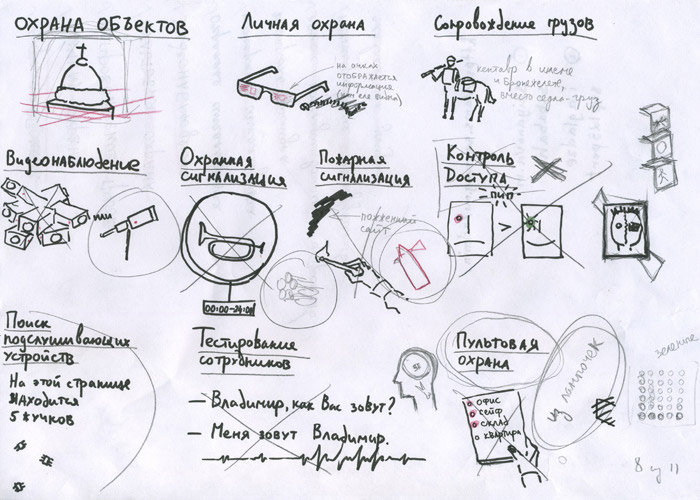 ОХРАНА ОБЪЕКТОВ
Личная охрана
на очках
отображается
информация
Сопровождение грузов
кентавр в шлеме
и бронежилете,
вместо седла-груз
Видеонаблюдение
Охранная
сигнализация
00:00-24:00
Пожарная
сигнализация
сайт
Контроль
Доступа
пип
>
Поиск
подслушивающих
устройств
На этой странице
находится
5 жучков
Тестирование
сотрудников
— Владимир, как Вас зовут?
— Меня зовут Владимир.
Пультовая
охрана
офис
сейф
склад
квартира
из лампочек
зеленые
8 из 11